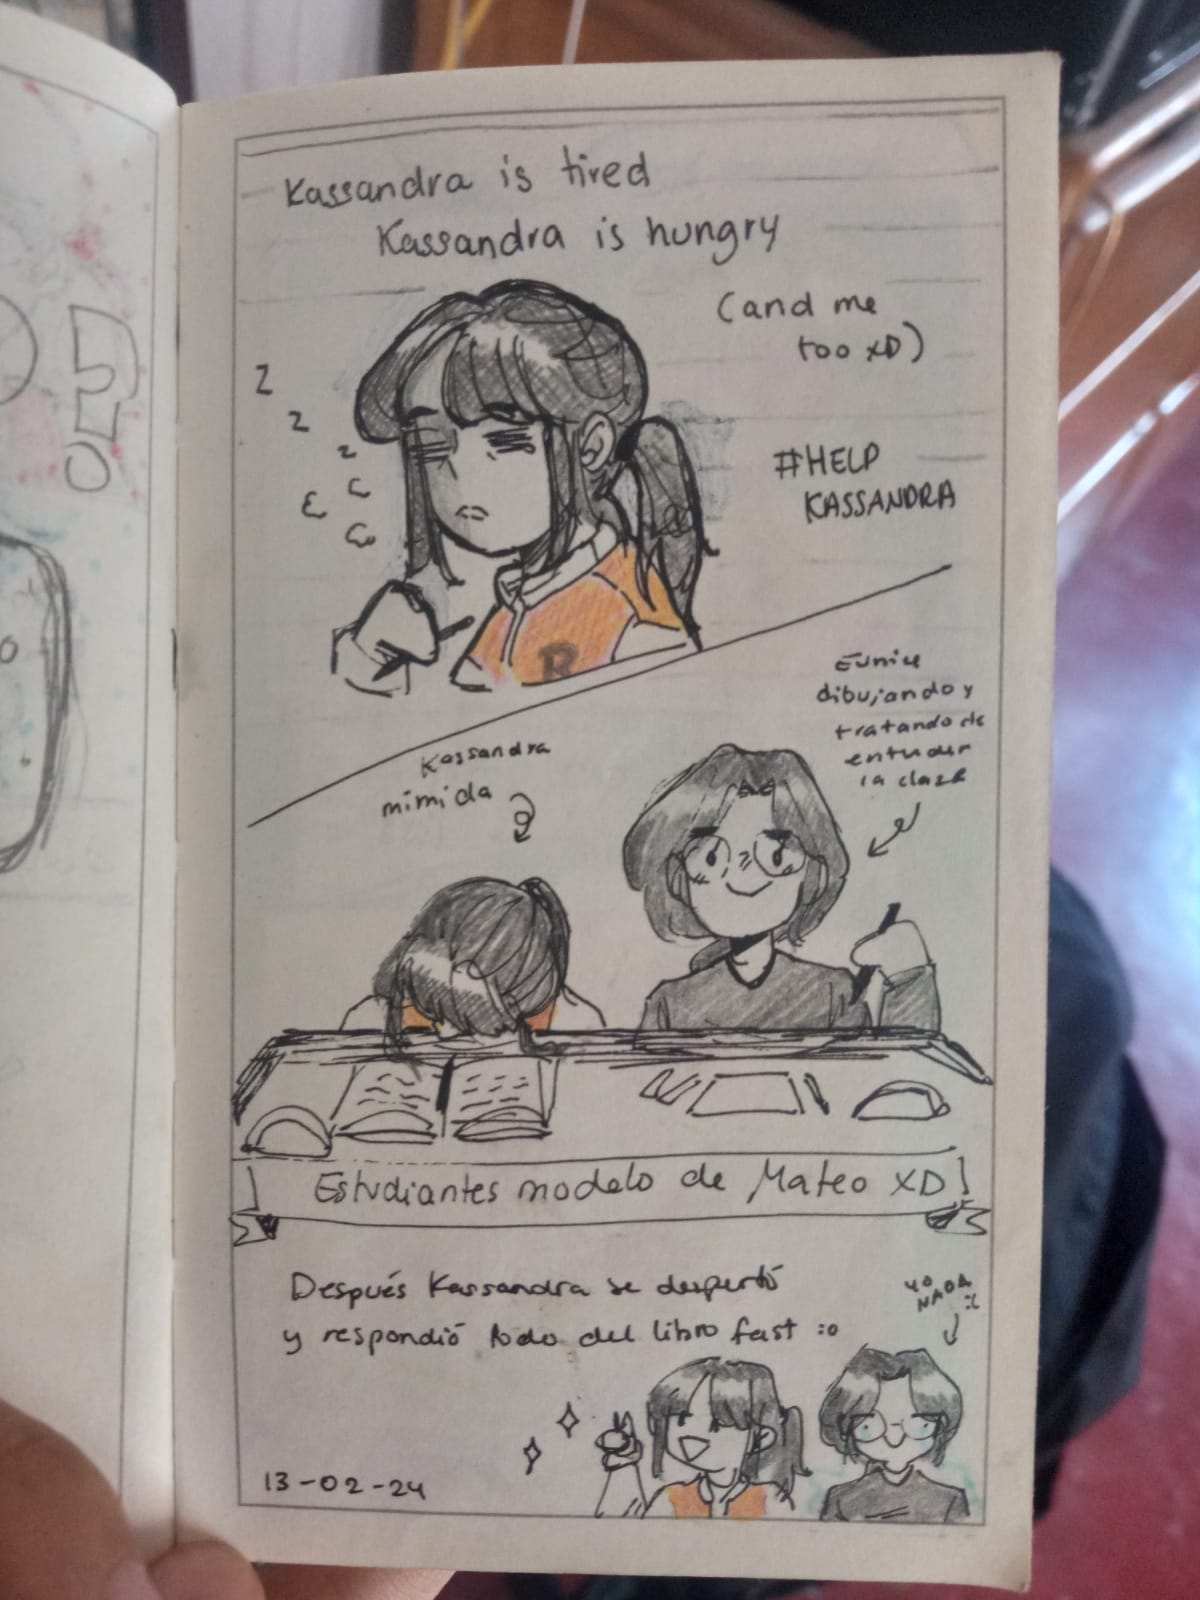 Kassandra is tired
Kassandra is hungry
(and me
too xD)
Z
z
z
#HELP
KASSANDRA
R
Eunice
dibujando y
tratando de
entender
la clase
Kassandra
mimida
Estudiantes modelo de Mateo XD
Después Kassandra se despertó
y respondió todo del libro fast :o
YO
NADA
:(
13-02-24